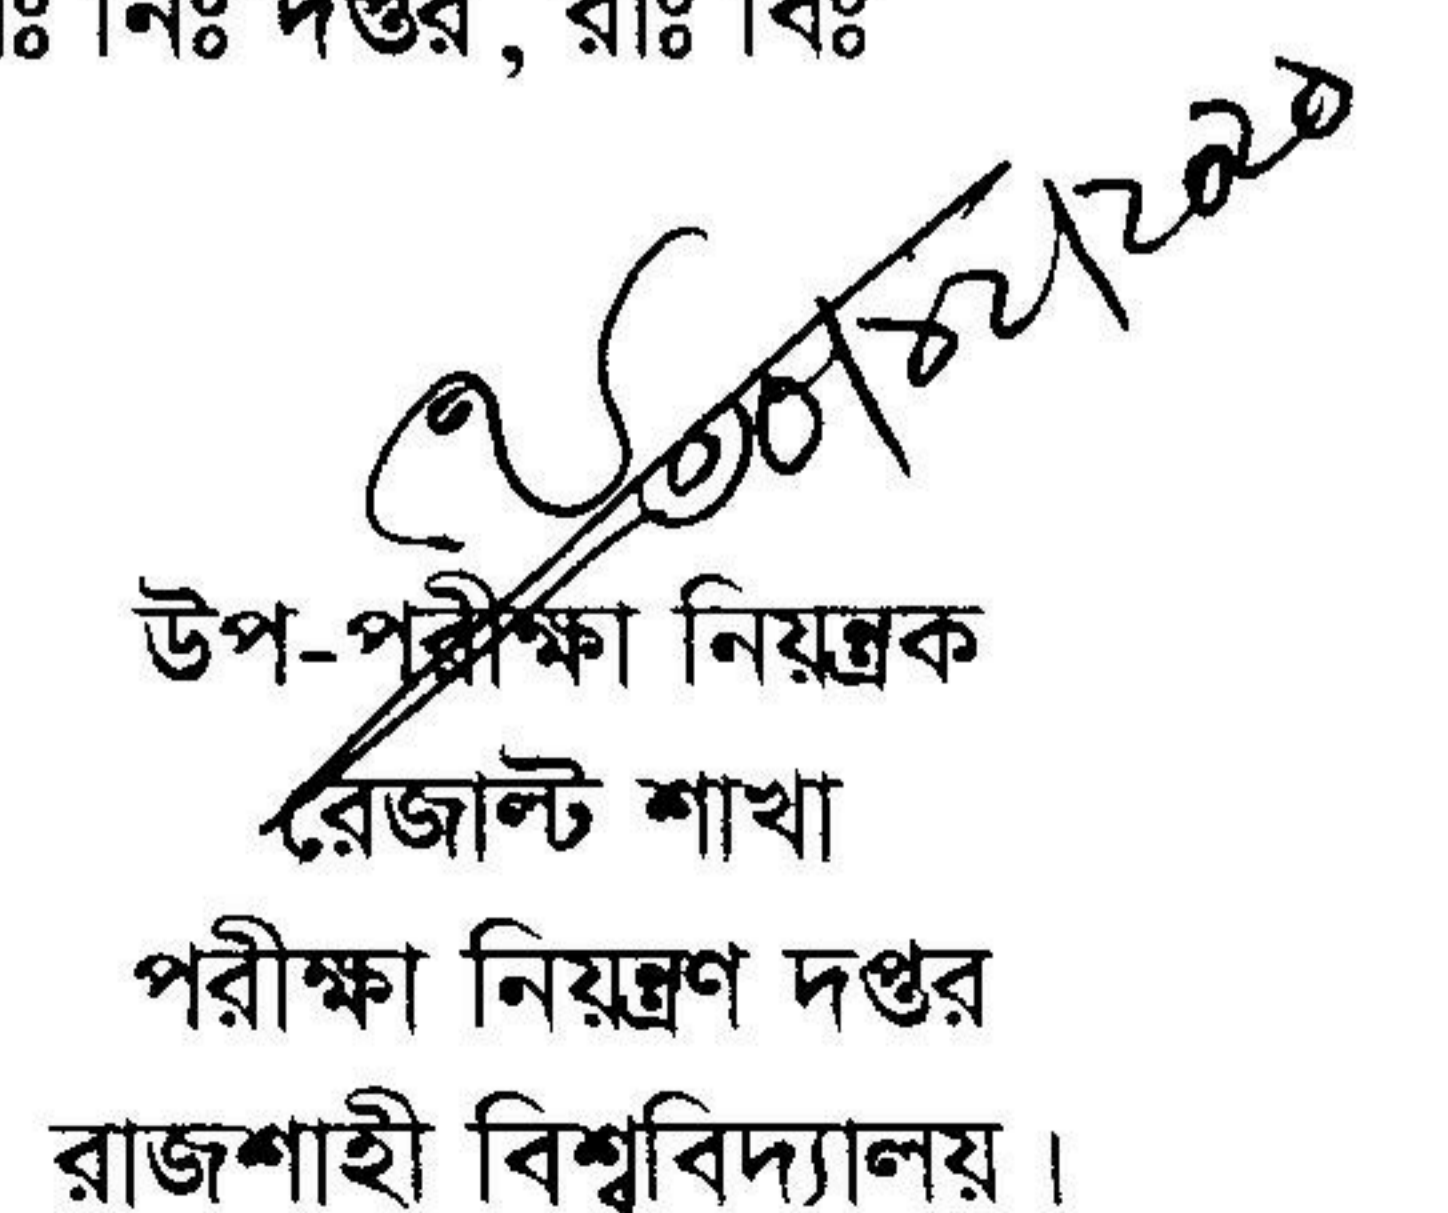 নিঃ দপ্তর, রাঃ বিঃ
উপ-পরীক্ষা নিয়ন্ত্রক
রেজাল্ট শাখা
পরীক্ষা নিয়ন্ত্রণ দপ্তর
রাজশাহী বিশ্ববিদ্যালয়।